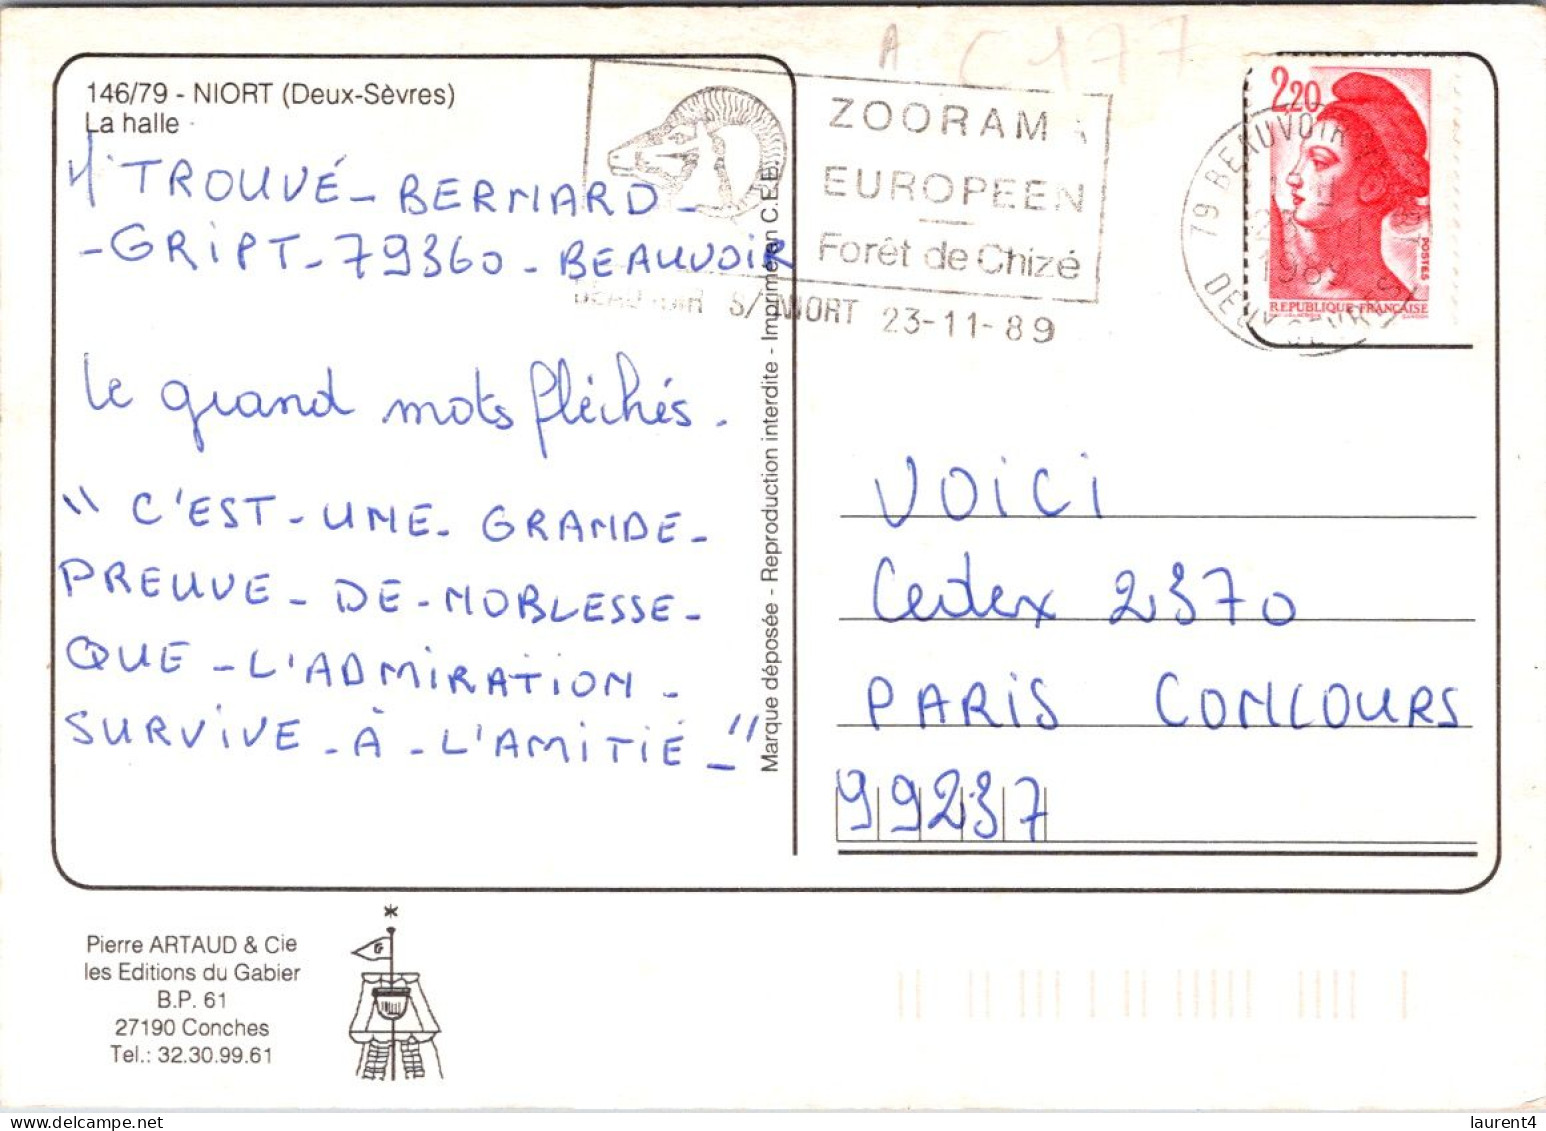 A C177
146/79 - NIORT (Deux-Sèvres)
La halle
Mr TROUVÉ - BERNARD -
- GRIPT - 79360 - BEAUVOIR
le grand mots fléchés.
" C'EST - UNE - GRANDE -
PREUVE - DE - NOBLESSE -
QUE - L'ADMIRATION -
SURVIVE - À - L'AMITIÉ - "
Marque déposée - Reproduction interdite - Imprimé en C.E.E.
ZOORAMA
EUROPEEN
Forêt de Chizé
BEAUVOIR S/ NIORT 23-11-89
2,20
POSTES
REPUBLIQUE FRANÇAISE
79 BEAUVOIR
1989
DEUX SEVRES
VOICI
Cedex 2370
PARIS CONCOURS
99237
Pierre ARTAUD & Cie
les Editions du Gabier
B.P. 61
27190 Conches
Tel.: 32.30.99.61
laurent4